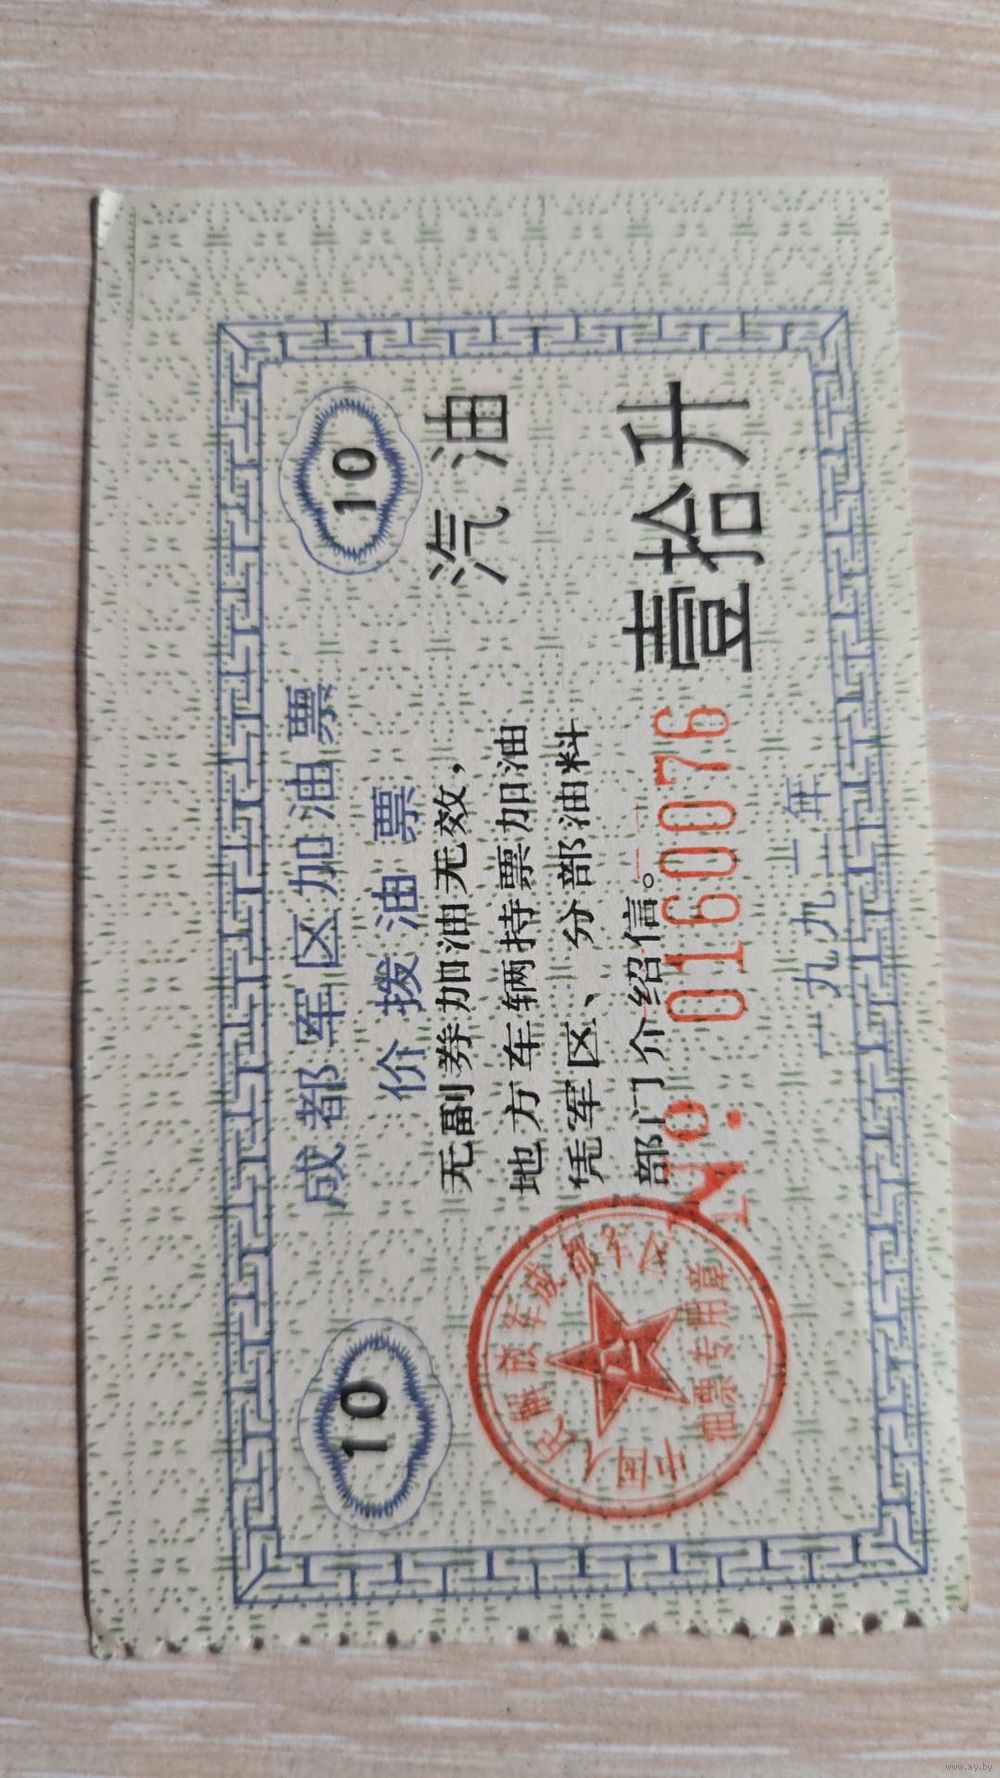 成都军区加油票
价拨油票
10
10
无副券加油无效，
地方车辆持票加油
凭军区、分部油料
部门介绍信。
汽油
壹拾升
№ 0160076
中国人民解放军成都军区
油票专用章
八一
一九九二年
www.ay.by